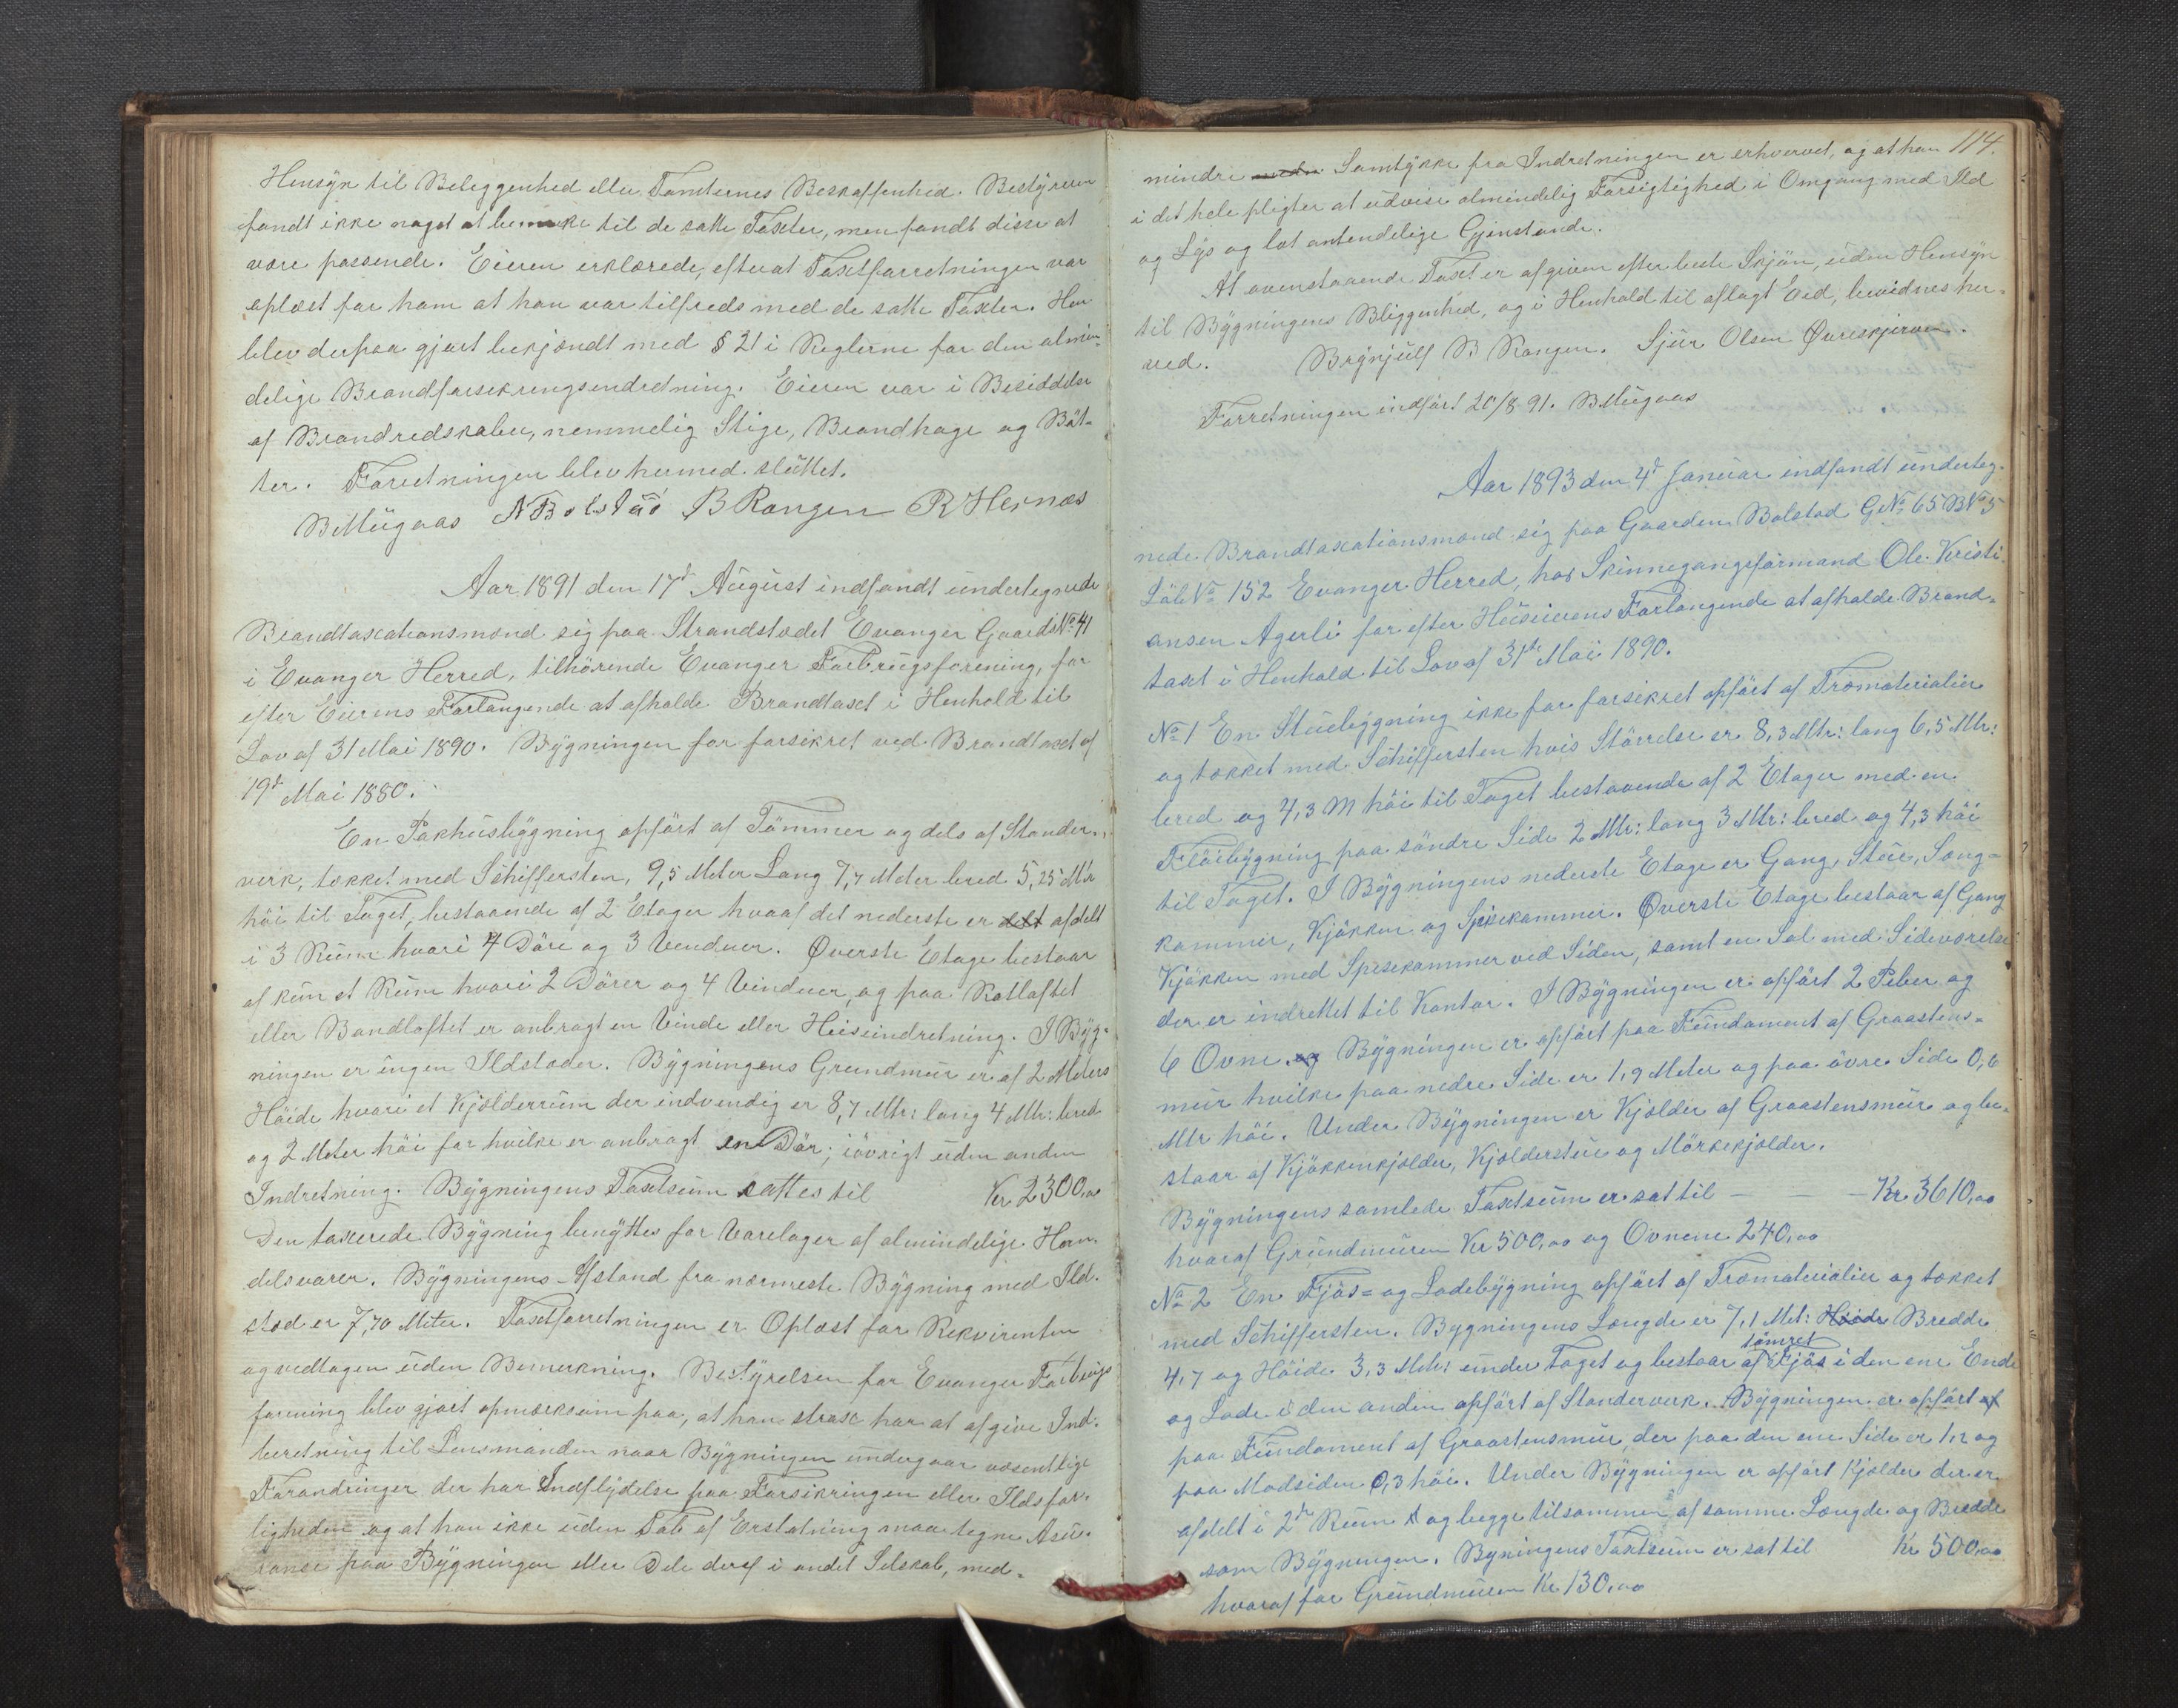 Hensyn til Beleggenhed eller Tomternes Beskaffenhed. Bestyreren
fandt ikke noget at bemerke til de satte Taxter, men fandt disse at
være passende. Eieren erklærede, efterat Taxtforretningen var
oplæst for ham at han var tilfreds med de satte Taxter. Han
blev derpaa gjort bekjendt med § 21 i Reglerne for den almin-
delige Brandforsikringsindretning. Eieren var i Besiddelse
af Brandredskaber, nemmelig Stige, Brandhage og Bøt-
ter. Forretningen blev hermed sluttet.
B Mügaas N Bolstad B Rongen R Hernæs
Aar 1891 den 17d August indfandt undertegnede
Brandtaxationsmænd sig paa Strandstedet Evanger Gaards No 41
i Evanger Herred, tilhørende Evanger Forbrugsforening, for
efter Eierens Forlangende at afholde Brandtaxt i Henhold til
Lov af 31 Mai 1890. Bygningen før forsikret ved Brandtaxt af
19d Mai 1880.
En Pakhusbygning opført af Tømmer og dels af Stender-
verk, tækket med Schiffersten, 9,5 Meter Lang 7,7 Meter bred 5,25 Mtr
høi til Taget, bestaaende af 2 Etager hvoraf det nederste er delt afdelt
i 3 Rum hvori 4 Døre og 3 Venduer. Øverste Etage bestaar
af kun et Rum hvori 2 Dører og 4 Vinduer, og paa Rotloftet
eller Bandloftet er anbragt en Vinde eller Heiseindretning. I Byg-
ningen er ingen Ildsteder. Bygningens Grundmur er af 2 Meters
Høide hvori et Kjelderrum der indvendig er 8,7 Mtr: lang 4 Mtr: bred
og 2 Meter høi for hvilke er anbragt en Dør; iøvrigt uden anden
Indretning. Bygningens Taxtsum sattes til Kr 2300,00
Den taxerede Bygning benyttes for Varelager af almindelige Han-
delsvarer. Bygningens Afstand fra nærmeste Bygning med Ild-
sted er 7,70 Meter. Taxtforretningen er Oplæst for Rekvirenten
og vedtagen uden Bemerkning. Bestyrelsen for Evanger Forbrugs
forening blev gjort opmærksom paa, at han strax har at afgive Ind-
beretning til Lensmanden naar Bygningen undergaar væsentlige
Forandringer der har Indflydelse paa Forsikringen eller Ildsfar-
ligheden og at han ikke uden Tab af Erstatning maa tegne Asu-
ranse paa Bygningen eller Dele deraf i andet Selskab, med-
114.
mindre Samtykke fra Indretningen er erhvervet, og at han
i det hele pligter at udvise almindelig Forsigtighed i Omgang med Ild
og Lys og let antendelige Gjenstande.
At ovenstaaende Taxt er afgiven efter beste Skjøn, uden Hensyn
til Bygningens Bliggenhed, og i Henhold til aflagt Eed, bevidnes her-
ved. Brynjulf B Rongen. Sjur Olsen Øvreskjerven.
Forretningen indført 20/8 91. B Mügaas
Aar 1893 den 4d Januar indfandt underteg-
nede Brandtaxationsmænd sig paa Gaarden Bolstad GNo 65 BNo 5
Løbe No 152 Evanger Herred, hos Skinnegangsformand Ole Kristi-
ansen Agerli for efter Huseierens Forlangende at afholde Brand-
taxt i Henhold til Lov af 31te Mai 1890.
No 1 En Stuebygning ikke før forsikret opført af Træmaterialier
og tækket med Schiffersten hvis Størrelse er 8,3 Mtr: lang 6,5 Mtr:
bred og 4,3 M høi til Taget bestaaende af 2 Etager med en
Fløibygning paa søndre Side 2 Mtr: lang 3 Mtr: bred og 4,3 høi
til Taget. I Bygningens nederste Etage er Gang, Stue, Seng-
kammer, Kjøkken og Spisekammer. Øverste Etage bestaar af Gang
Kjøkken med Spisekammer ved Siden, samt en Sal med Sideværelse
der er indrettet til Kontor. I Bygningen er opført 2 Piber og
6 Ovne. og Bygningen er opført paa Fundament af Graastens-
mur hvilke paa nedre Side er 1,9 Meter og paa øvre Side 0,6
Mtr høi. Under Bygningen er Kjelder af Graastensmur og be-
staar af Kjøkkenkjelder, Kjelderstue og Mørkekjelder.
Bygningens samlede Taxtsum er sat til — — — Kr 3610,00
hvoraf Grundmuren Kr 500,00 og Ovnene 240,00
No 2 En Fjøs- og Ladebygning opført af Træmaterialier og tækket
med Schiffersten. Bygningens Længde er 7,1 Met: Høide Bredde
4,7 og Høide 3,3 Mtr: under Taget og bestaar af tømret Fjøs i den ene Ende
og Lade i den anden opført af Stenderverk. Bygningen er opført af
paa Fundament af Graastensmur, der paa den ene Side er 1,2 og
paa Modsiden 0,3 høi. Under Bygningen er opført Kjelder der er
afdelt i 2de Rum og begge tilsammen af samme Længde og Bredde
som Bygningen. Byningens Taxtsum er sat til Kr 500,00
hvoraf for Grundmuren Kr 130,00